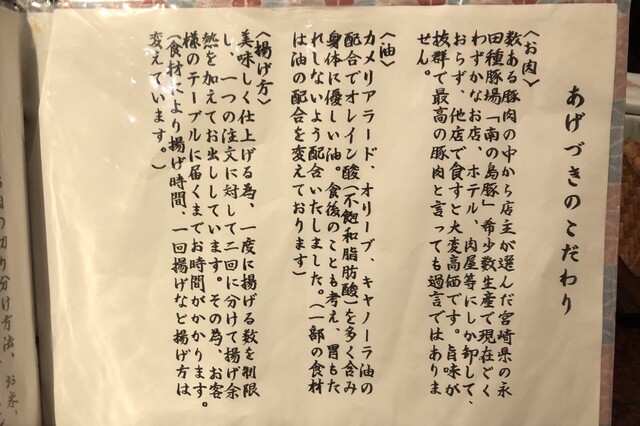 あげづきのこだわり
〈お肉〉
数ある豚肉の中から店主が選んだ宮崎県の永
田種豚場「南の島豚」希少数生産で現在ごく
わずかなお店、ホテル、肉屋等にしか卸して、
おらず、他店で食すと大変高価です。旨味が
抜群で最高の豚肉と言っても過言ではありま
せん。
〈油〉
カメリアラード、オリーブ、キャノーラ油の
配合でオレイン酸(不飽和脂肪酸)を多く含み
身体に優しい油。食後のことも考え、胃もた
れしないよう配合いたしました。(一部の食材
は油の配合を変えております)
〈揚げ方〉
美味しく仕上げる為、一度に揚げる数を制限
し、一つの注文に対して二回に分けて揚げ余
熱を加えてお出ししています。その為、お客
様のテーブルに届くまでお時間がかかります。
(食材により揚げ時間、一回揚げなど揚げ方は
変えています。)
の切り分け方法、お米、